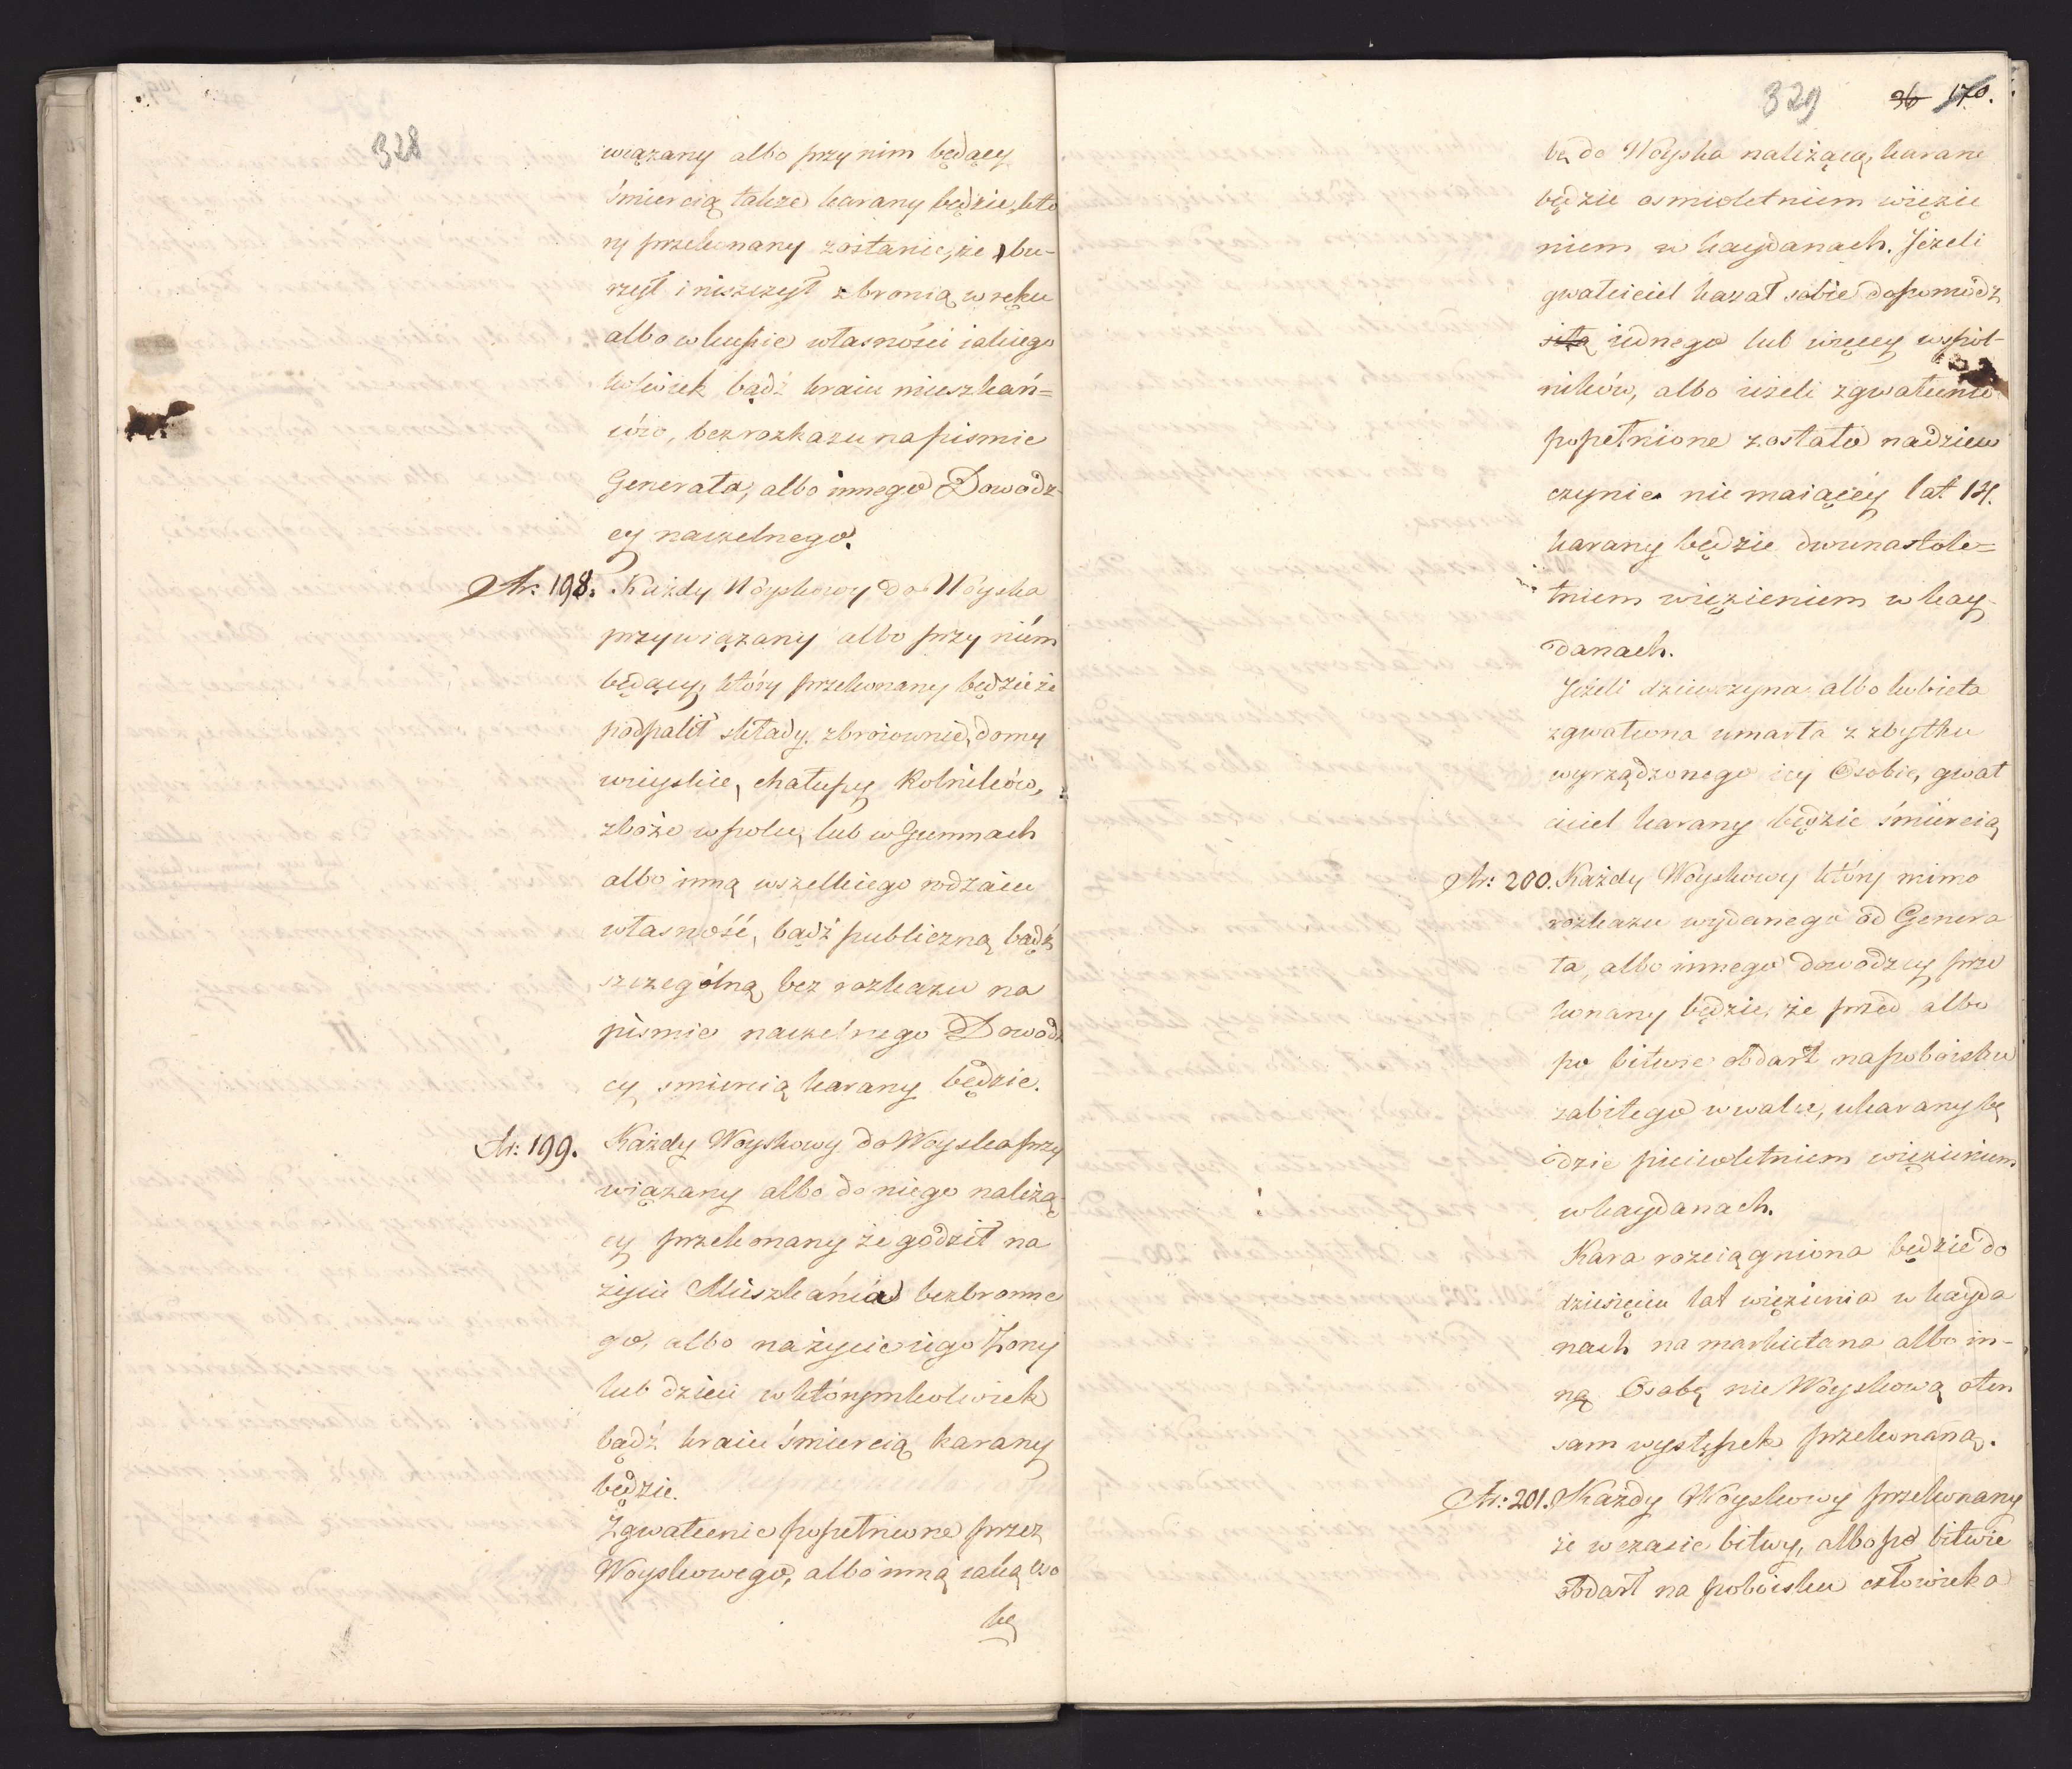 328
wiązany albo przy nim będący
śmiercią także karany będzie, któ
ry przekonany zostanie, że bu-
rzył i niszczył z bronią w ręku
albo w kupie własności iakiego
kolwiek bądź kraiu mieszkań=
ców, bez rozkazu na pismie
Generała, albo innego Dowodz-
cy naczelnego.
Ar: 198. Każdy Woyskowy do Woyska
przywiązany albo przy nim
będący, który przekonany będzie że
podpalił składy, zbroiownie, domy
wieyskie, chałupy Rolników,
zboże w polu, lub w Gumnach
albo inną wszelkiego rodzaiu
własność, bądź publiczną bądź
szczególną bez rozkazu na
pismie naczelnego Dowodz
cy smiercią karany będzie.
Ar: 199. Każdy Woyskowy do Woyska przy
wiązany albo do niego należą
cy przekonany że godził na
życie Mieszkańca bezbronne
go, albo na życie iego Żony
lub dzieci w którymkolwiek
bądź kraiu śmiercią karany
będzie.
Zgwałcenie popełnione przez
Woyskowego, albo inną iaką oso
bę
329 36 170.
bę do Woyska należącą, karane
będzie osmioletniem więzie
niem w kaydanach. Jeżeli
gwałciciel kazał sobie dopomódz
siłą iednego lub więcey wspól-
ników, albo ieżeli zgwałcenie
popełnione zostało na dziew
czynie nie maiącéy lat 14.
karany będzie dwunastole=
tniem więzieniem w kay
danach.
Jeżeli dziewczyna albo kobieta
zgwałcona umarła z zbytku
wyrządzonego iey Osobie, gwał
ciciel karany będzie śmiercią
Ar: 200. Każdy Woyskowy który mimo
rozkazu wydanego od Genera
ła, albo innego dowodzcy prze
konany będzie, że przed albo
po bitwie obdarł na poboisku
zabitego w walce, ukarany bę
dzie pięcioletniem więzieniem
w kaydanach.
Kara rozciągniona będzie do
dziesięciu lat więzienia w kayda
nach na markietana albo in-
ną Osobę nie Woyskową o ten
sam występek przekonaną.
Ar: 201. Każdy Woyskowy przekonany
że w czasie bitwy, albo po bitwie
obdarł na poboisku człowieka